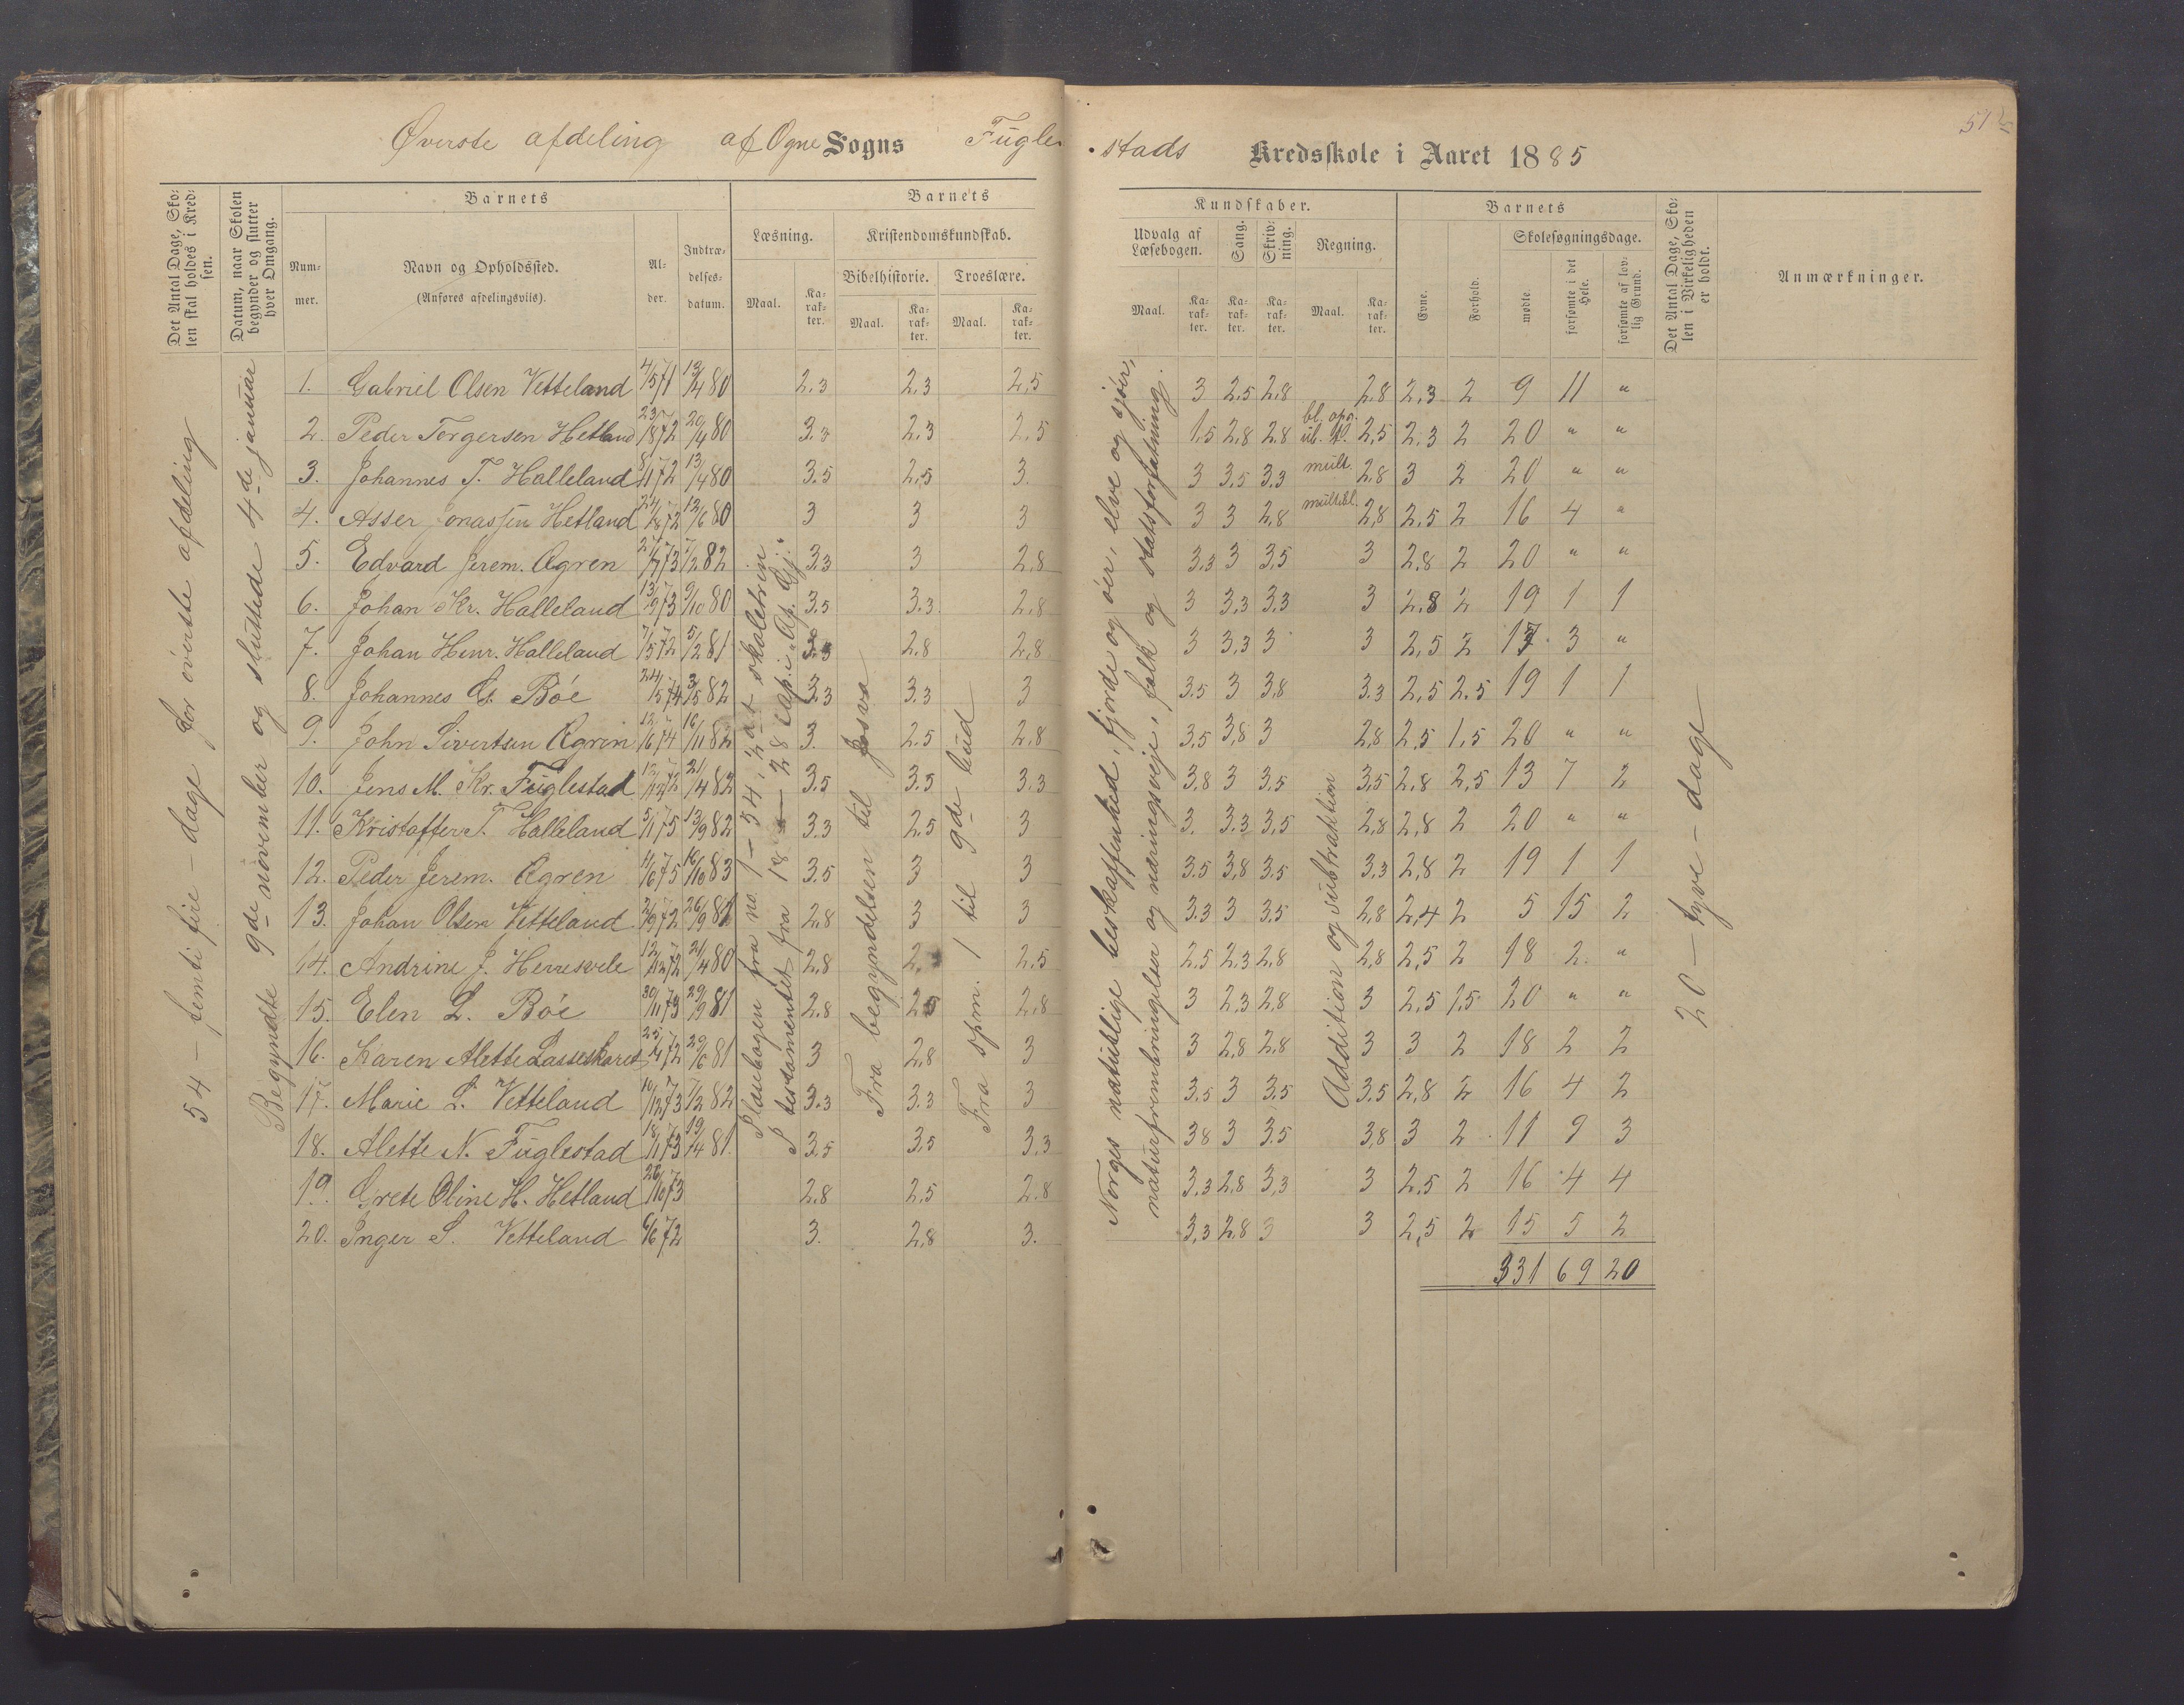 Øverste afdeling af Ogne Sogns Fugle-
stads Kredsskole i Aaret 1885
Det Antal Dage, Skolen skal holdes i Kredsen.
Datum, naar Skolen begynder og slutter hver Omgang.
Barnets
Barnets
Kundskaber.
Barnets
Det Antal Dage, Skolen i Virkeligheden er holdt.
Anmærkninger.
Nummer.
Navn og Opholdssted.
(Anføres afdelingsviis).
Alder.
Indtrædelsesdatum.
Læsning.
Kristendomskundskab.
Bibelhistorie.
Troeslære.
Maal.
Karakter.
Maal.
Karakter.
Maal.
Karakter.
Udvalg af Læsebogen.
Sang.
Skrivning.
Regning.
Maal.
Karakter.
Karakter.
Karakter.
Maal.
Karakter.
Evne.
Forhold.
Skolesøgningsdage.
mødte.
forsømte i det Hele.
forsømte af lovlig Grund.
54 – femti fire – dage for øverste afdeling
Begyndte 9de november og sluttede 4de januar
I læsebogen fra no. 1 – 54, 2det skoletrin
I testamentet fra 18 – 28 cap. i "Ap. Gj."
Fra begyndelsen til Josva
Fra spm. 1 til 9de bud
Norges naturlige beskaffenhed, fjorde og øer, elve og sjøer,
naturfrembringelser og næringsveje, folk og statsforfatning.
Addition og subtraktion
20 – tyve – dage
1. Gabriel Olsen Vetteland 4/5 71 13/4 80 2.3 2.3 2,5 3 2,5 2,8 2.8 2,3 2 9 11 "
2. Peder Torgersen Hetland 23/8 72 20/4 80 3.3 2,3 2,5 1,5 2,8 2.8 2,5 2.3 2 20 " "
3. Johannes T. Halleland 8/11 72 13/4 80 3.5 2,5 3. 3 3,5 3.3 mult. 2,8 3 2 20 " "
4. Asser Jonassen Hetland 24/8 72 12/6 80 3 3 3 3 3 2,8 2,8 2,5 2 16 4 "
5. Edvard Jerem. Ogren 7/2 82 3.3 3 2,8 3,3 3 3,5 3 2,8 2 20 " "
6. Johan Kr. Halleland 13/9 73 9/10 80 3.5 3.3 2,8 3 3,3 3,3 3 2,8 2 19 1 1
7. Johan Henr. Halleland 5/2 81 2.8 2,8 3 3,3 3 3 2,5 2 17 3 "
8. Johannes G. Bøe 24/5 74 3/5 82 3.3 3.3 3 3.5 3 3,8 3.3 2,5 2.5 19 1 1
9. John Sivertsen Ogren 16/11 82 3. 2.5 2,8 3,5 3,8 3 2,8 2,5 1,5 20 " "
10. Jens M. Kr. Fuglestad 21/4 82 3.5 3.5 3.3 3,8 3 3,5 3,5 2,8 2,5 13 7 2
11. Kristoffer T. Halleland 5/11 75 13/9 82 3.3 2.5 3 3. 3.3 3,5 2,8 2,8 2 20 " "
12. Peder Jerem. Ogren 11/6 75 16/10 83 3.5 3 3 3.5 3,8 3.5 3,3 2,8 2 19 1 1
13. Johan Olsen Vetteland 2/9 72 2,8 3 3 3.3 3 3.5 2,8 2,4 2 5 15 2
14. Andrine J. Herresvele 12/12 72 21/4 80 2,8 2,5 2,5 2,3 2,8 2,8 2,5 2 18 2 "
15. Elen L. Bøe 30/11 73 29/9 81 2.8 2,8 3 2,3 2,8 3 2,5 1,5 20 " "
16. Karen Alette 29/6 81 3 2,8 3 3 2,8 2,8 3 3 2 18 2 2
17. Marie L. Vetteland 10/12 73 7/2 82 3.3 3.3 3 3.5 3 3.5 3.5 2,8 2 16 4 2
18. Alette N. Fuglestad 18/11 73 19/4 81. 3.5 3,5 3,3 3 8 3 3.5 3,8 3 2 11 9 3
19. Grete Oline H. Hetland 26/10 73 2.8 2,5 2.8 3,3 2,8 3,3 3 2,5 2 16 4 4
20. Inger S. Vetteland 6/6 72 3. 2,8 3. 3,3 2.8 3 3 2,5 2 15 5 2
331 69 20